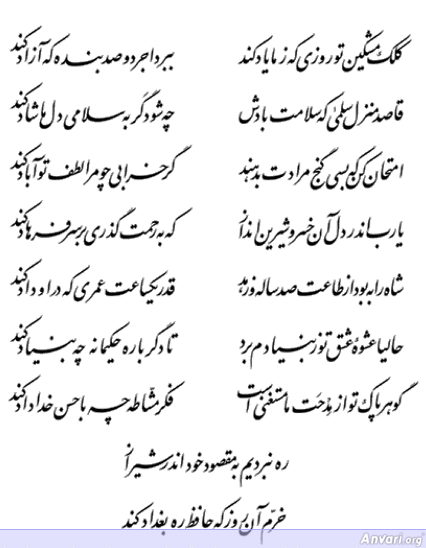 کلک مشکین تو روزی که ز ما یاد کند ببرد اجر دو صد بنده که آزاد کند
قاصد منزل سلمی که سلامت بادش چه شود گر به سلامی دل ما شاد کند
امتحان کن که بسی گنج مرادت بدهند گر خرابی چو مرا لطف تو آباد کند
یارب اندر دل آن خسرو شیرین انداز که به رحمت گذری بر سر فرهاد کند
شاه را به بود از طاعت صد ساله و زهد قدر یکساعت عمری که در او داد کند
حالیا عشوهٔ عشق تو ز بنیادم برد تا دگر باره حکیمانه چه بنیاد کند
گوهر پاک تو از مدحت ما مستغنی است فکر مشّاطه چه با حسن خداداد کند
ره نبردیم به مقصود خود اندر شیراز
خرّم آن روز که حافظ ره بغداد کند
Anvari.org